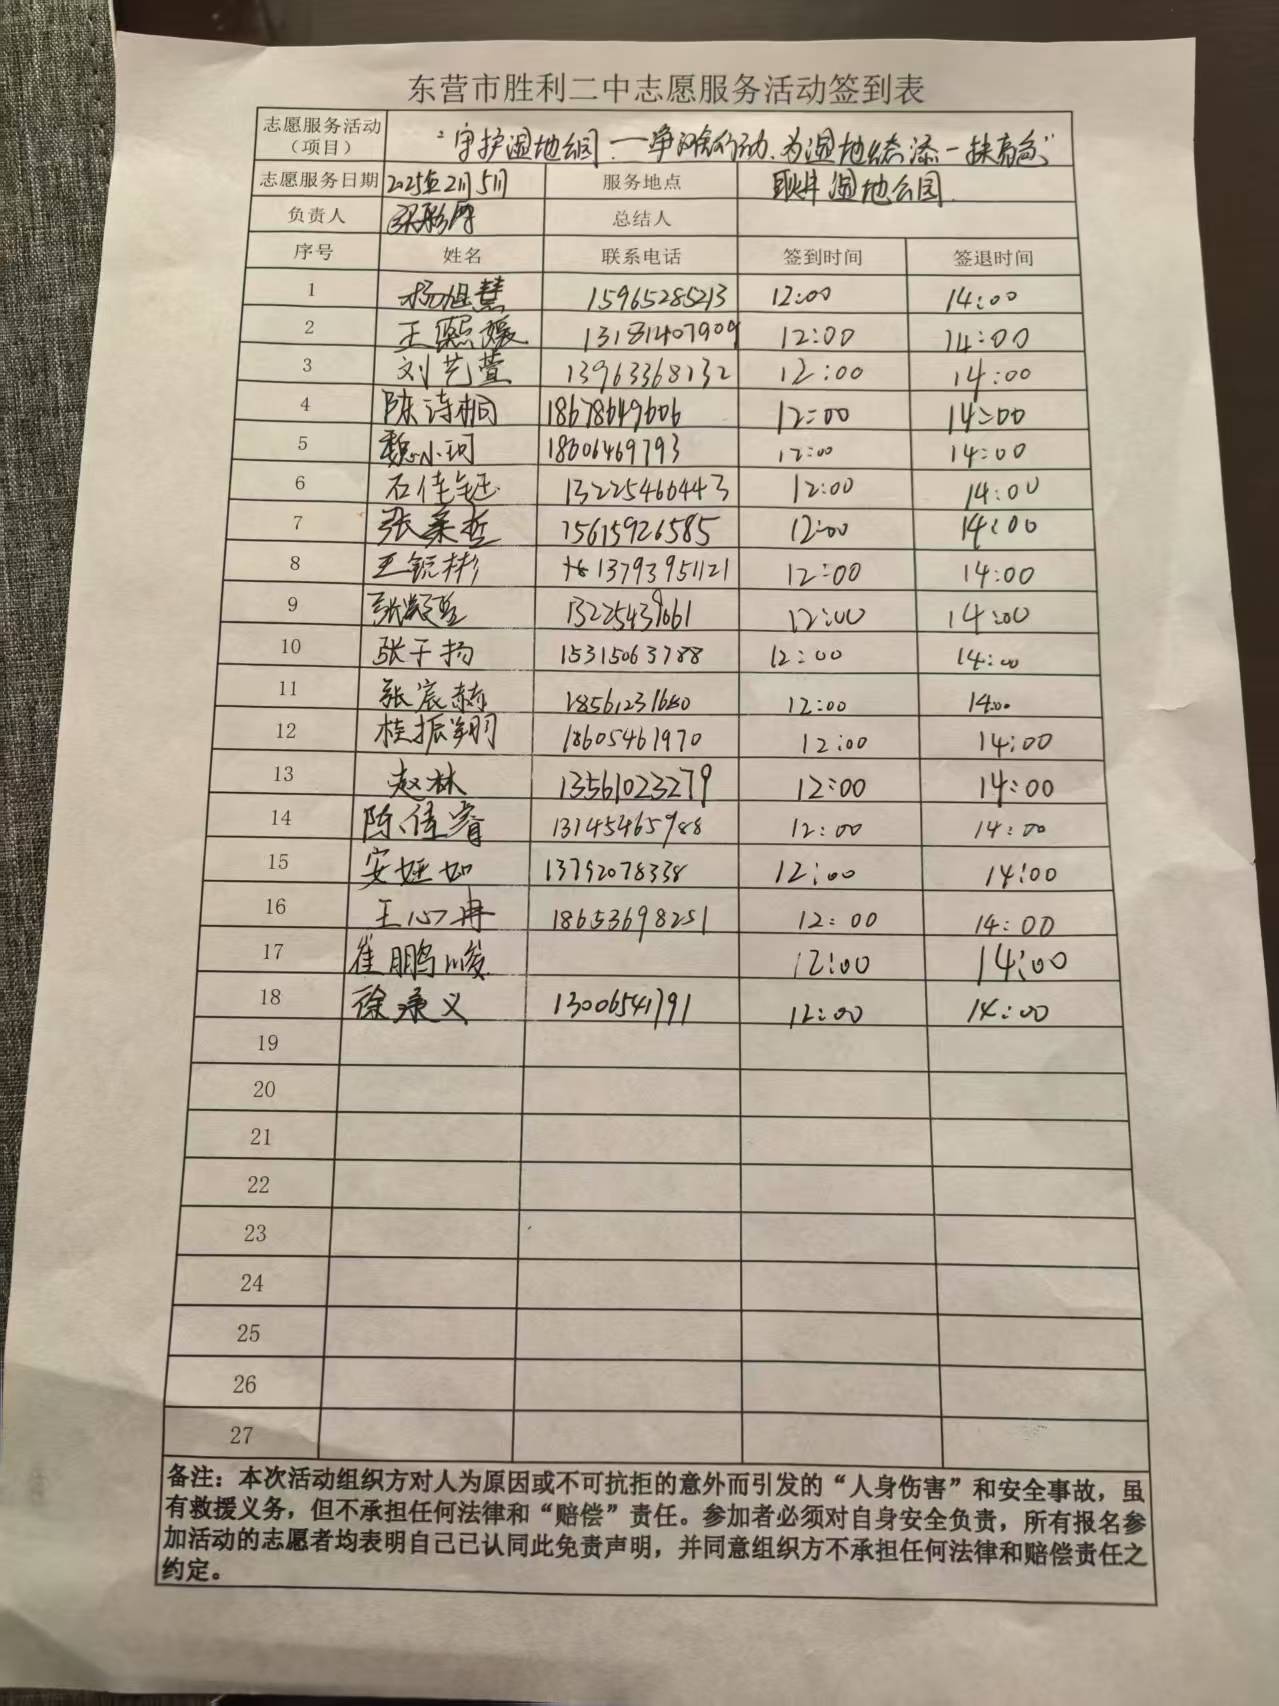 东营市胜利二中志愿服务活动签到表
志愿服务活动（项目） “守护湿地公园——净滩行动、为湿地生态添一抹亮色”
志愿服务日期 2025年2月5日 服务地点 湿地公园
负责人 总结人
序号 姓名 联系电话 签到时间 签退时间
1 杨旭慧 15965285213 12:00 14:00
2 王熙媛 13181407909 12:00 14:00
3 刘艺萱 13963368132 12:00 14:00
4 陈诗桐 18678649606 12:00 14:00
5 魏小珂 18606469793 12:00 14:00
6 石佳钰 13225466443 12:00 14:00
7 张桑哲 15615926585 12:00 14:00
8 王锐彬 13793951121 12:00 14:00
9 13225439661 12:00 14:00
10 张子扬 15315063788 12:00 14:00
11 张宸赫 12:00 14:00
12 桂振翔 18605461970 12:00 14:00
13 赵林 13561023279 12:00 14:00
14 陈佳睿 13145465988 12:00 14:00
15 安娅如 13792078338 12:00 14:00
16 王心冉 18653698251 12:00 14:00
17 崔鹏峻 12:00 14:00
18 徐承义 13006541791 12:00 14:00
19
20
21
22
23
24
25
26
27
备注：本次活动组织方对人为原因或不可抗拒的意外而引发的“人身伤害”和安全事故，虽
有救援义务，但不承担任何法律和“赔偿”责任。参加者必须对自身安全负责，所有报名参
加活动的志愿者均表明自己已认同此免责声明，并同意组织方不承担任何法律和赔偿责任之
约定。